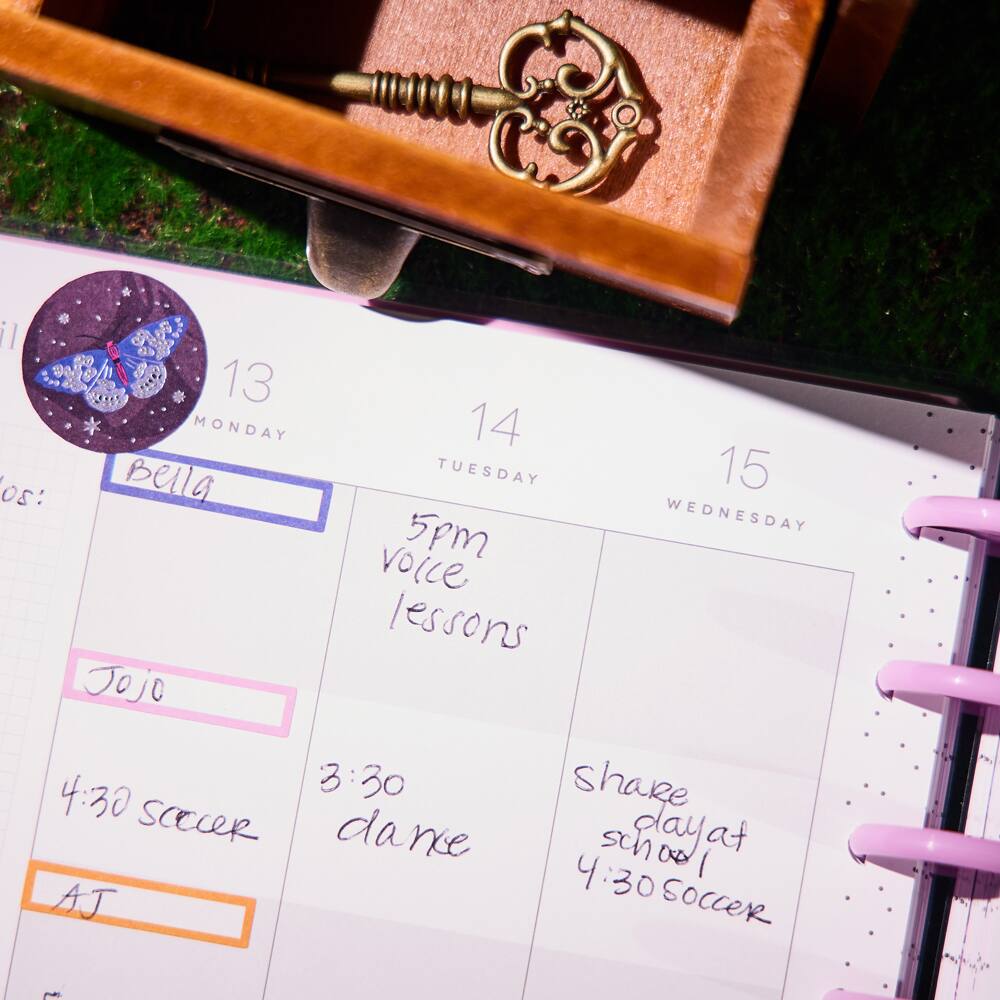 il
13
MONDAY
14
TUESDAY
15
WEDNESDAY
Bella
5pm
voice
lessons
Jojo
4:30 soccer
3:30
dance
share
day at
school
4:30 soccer
AJ